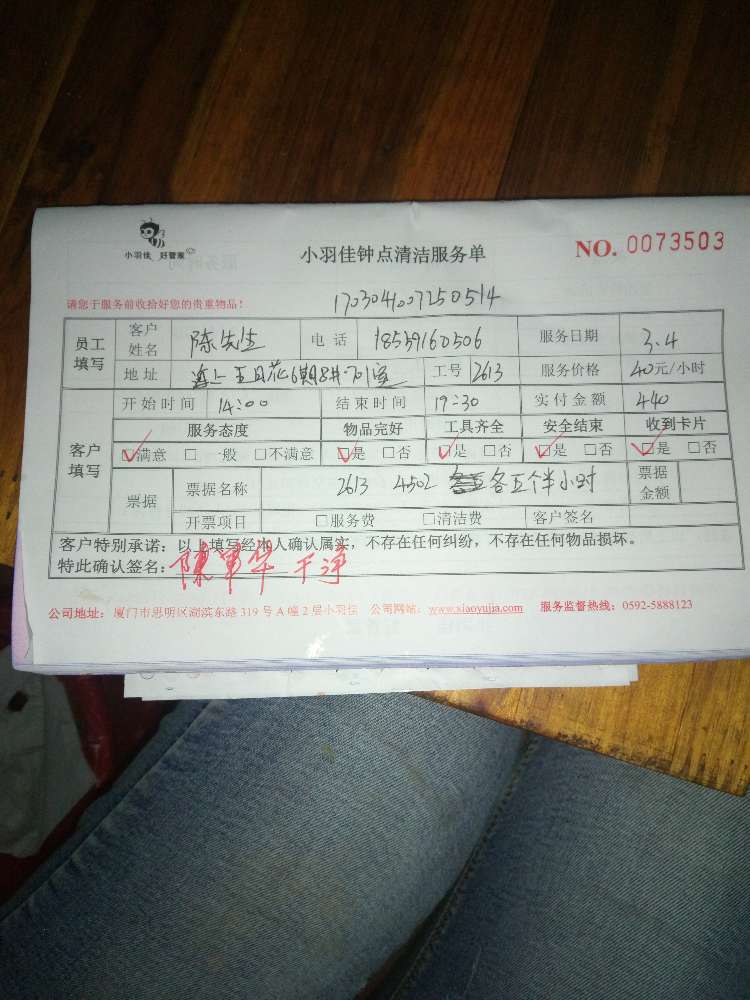 小羽佳 好管家
小羽佳钟点清洁服务单 NO. 0073503
请您于服务前收拾好您的贵重物品! 170304007250514
员工填写 客户姓名 陈先生 电话 18559160506 服务日期 3.4
地址 五月花6期8# 701室 工号 2613 服务价格 40元/小时
客户填写 开始时间 14:00 结束时间 19:30 实付金额 440
服务态度 物品完好 工具齐全 安全结束 收到卡片
☑满意 □一般 □不满意 ☑是 □否 ☑是 □否 ☑是 □否 ☑是 □否
票据 票据名称 2613 4502 各五个半小时 票据金额
开票项目 □服务费 □清洁费 客户签名
客户特别承诺:以上填写经本人确认属实,不存在任何纠纷,不存在任何物品损坏。
特此确认签名: 陳军华 干净
公司地址:厦门市思明区湖滨东路319号A幢2层小羽佳 公司网站:www.xiaoyujia.com 服务监督热线:0592-5888123